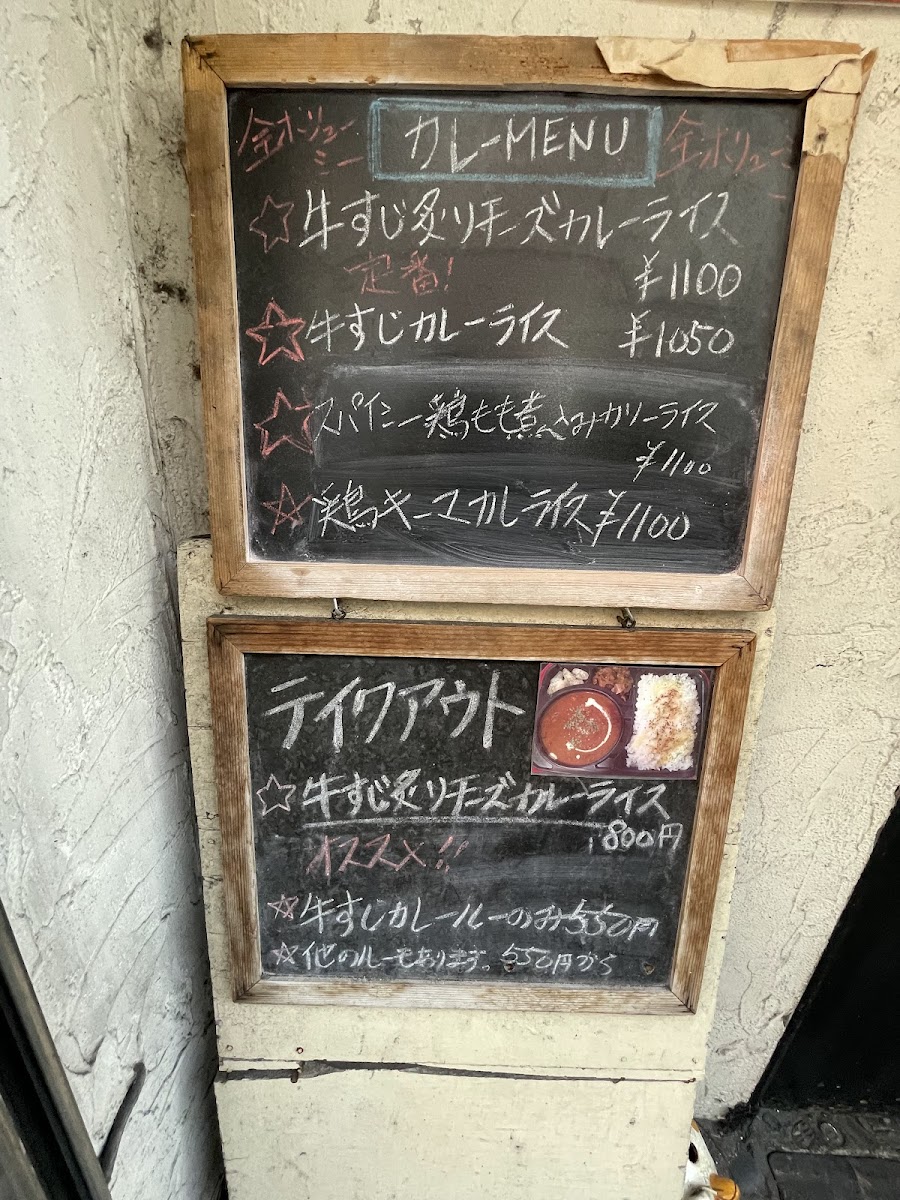 全ボリューミー カレーMENU 全ボリューミー
☆牛すじ炙りチーズカレーライス
定番! ¥1100
☆牛すじカレーライス ¥1050
☆スパイシー鶏もも煮込みカリーライス
¥1100
☆鶏キーマカレーライス ¥1100
テイクアウト
☆牛すじ炙りチーズカレーライス
オススメ!! 800円
☆牛すじカレールーのみ550円
☆他のルーもあります。550円から